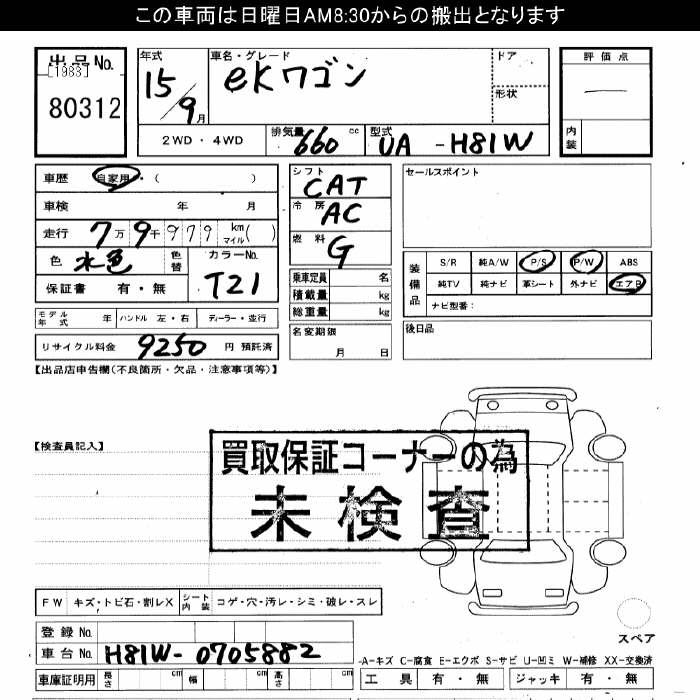 この車両は日曜日AM8:30からの搬出となります
出品No.
[1983]
80312
年式
15/9月
車名・グレード
eKワゴン
ドア
形状
評価点
―
内装
2WD・4WD
排気量
660 cc
型式
UA - H81W
車歴 自家用・( )
車検 年 月
走行 7万9千979 km マイル( )
色 水色 色替
カラーNo. T21
保証書 有・無
モデル年式 年 ハンドル 左・右 ディーラー・並行
リサイクル料金 9250 円 預託済
シフト CAT
冷房 AC
燃料 G
乗車定員 名
積載量 kg
総重量 kg
名変期限
月 日
セールスポイント
装備品
S/R 純A/W P/S P/W ABS
純TV 純ナビ 革シート 外ナビ エアB
ナビ型番:
後日品
【出品店申告欄(不良箇所・欠品・注意事項等)】
【検査員記入】
買取保証コーナーの為
未検査
FW キズ・トビ石・割レX シート内装 コゲ・穴・汚レ・シミ・破レ・スレ
登録No.
車台No. H81W-0705882
車庫証明用 長さ cm 幅 cm 高さ cm
スペア
-A-キズ C-腐食 E-エクボ S-サビ U-凹ミ W-補修 XX-交換済
工具 有・無 ジャッキ 有・無